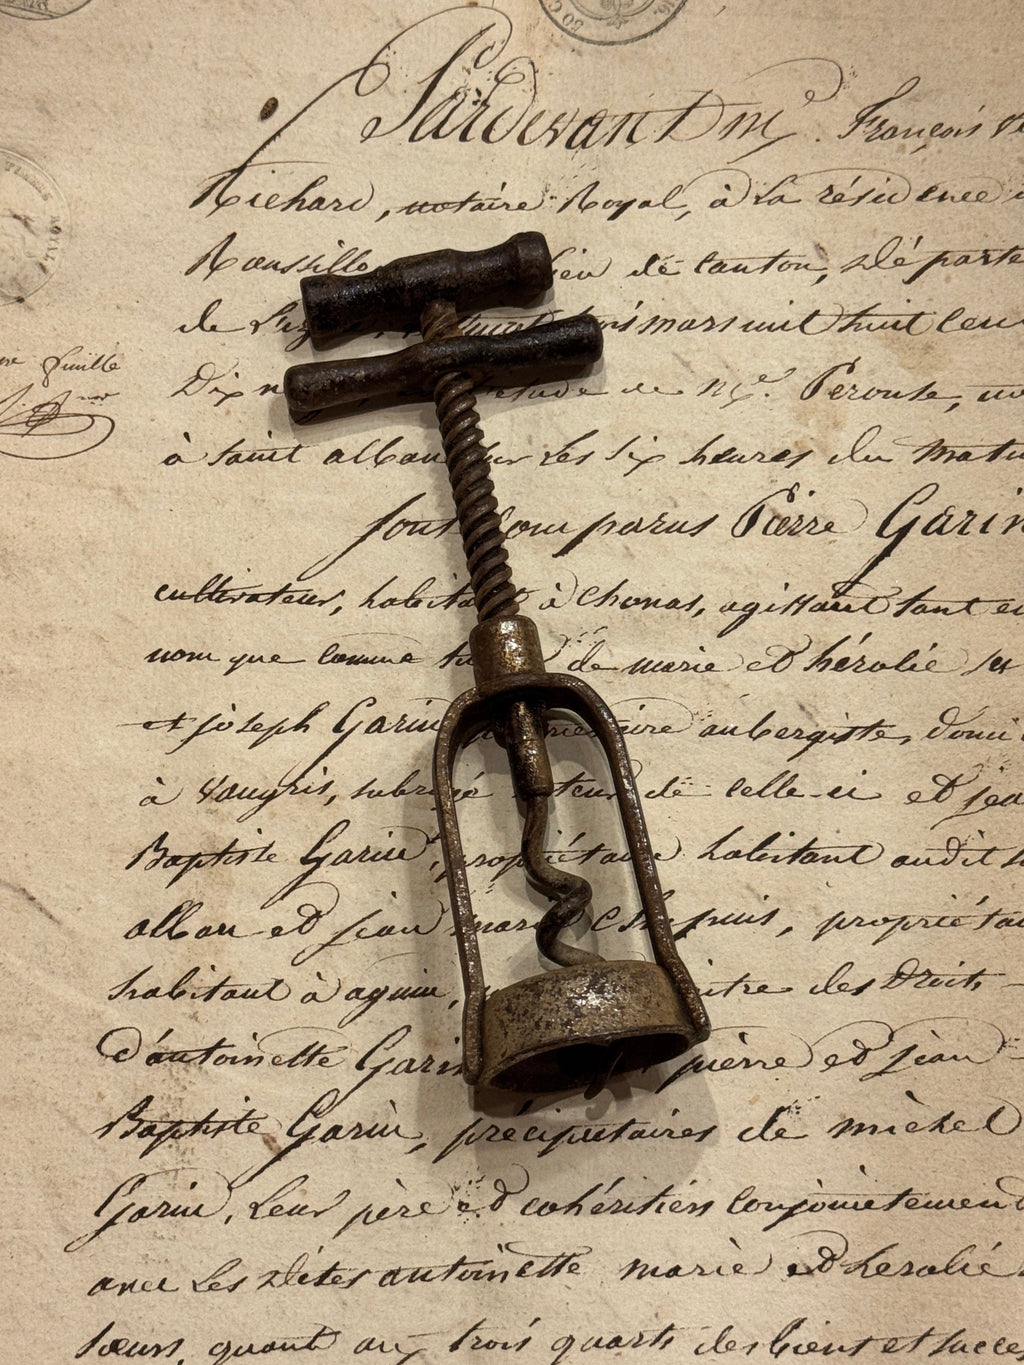 50 C
TIMBRE ROYAL
Pardevant Me. François
Richard, notaire Royal, à la résidence
Roussillo lieu de canton, départe
de trois mars mil huit cen
Dix n étude de Me. Peronse,
à saint alban sur les six heures du matin
sont comparus Pierre Garin
cultivateur, habitant à chonas, agissant tant en
nom que comme tu de marie et hérolié
et joseph Garin aubergiste, domi
à Vaugris, subrogé tuteur de celle-ci et jea
Baptiste Garin, propriétaire habitant audit s
alban et jean marie propriétai
habitant à agnin, des Droits
d'antoinette Garin pierre et jean
Baptiste Garin, préciputaires de michel
Garin, leur père et cohéritiers conjointement
avec les dites antoinette marie et herolié
sœurs, quant aux trois quarts des biens et succes
feuille